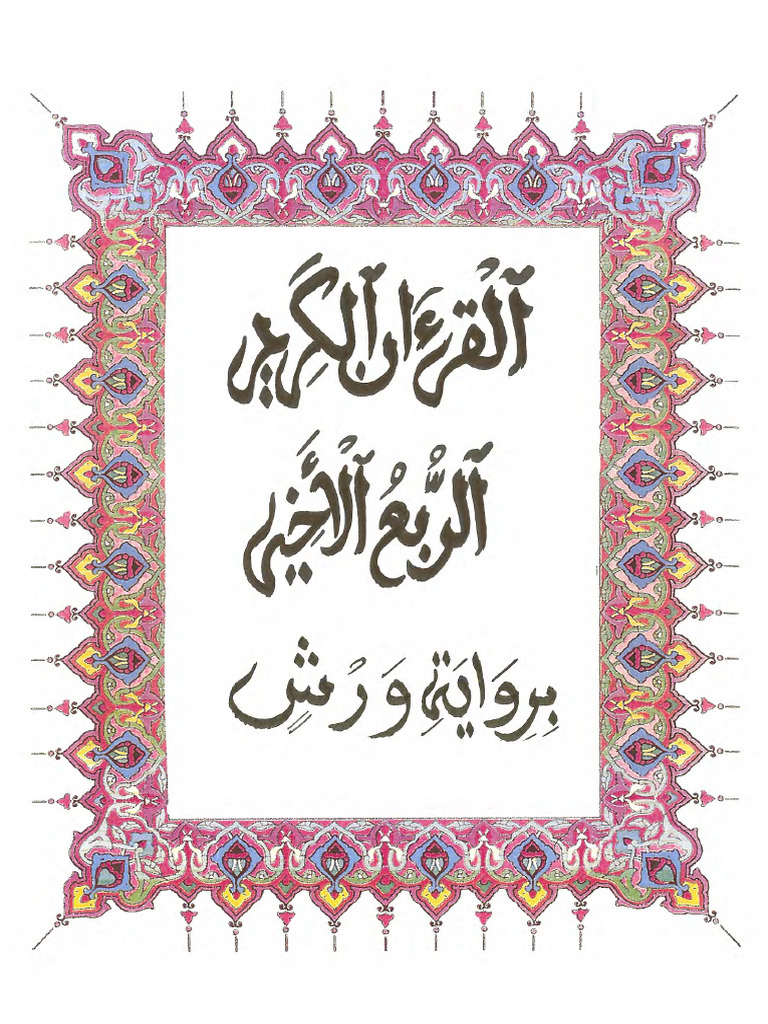 ٱلْقُرْءَان ٱلكَرِيم
ٱلرُّبْعُ ٱلْأَخِير
بِرِوَايَةِ وَرْشٍ